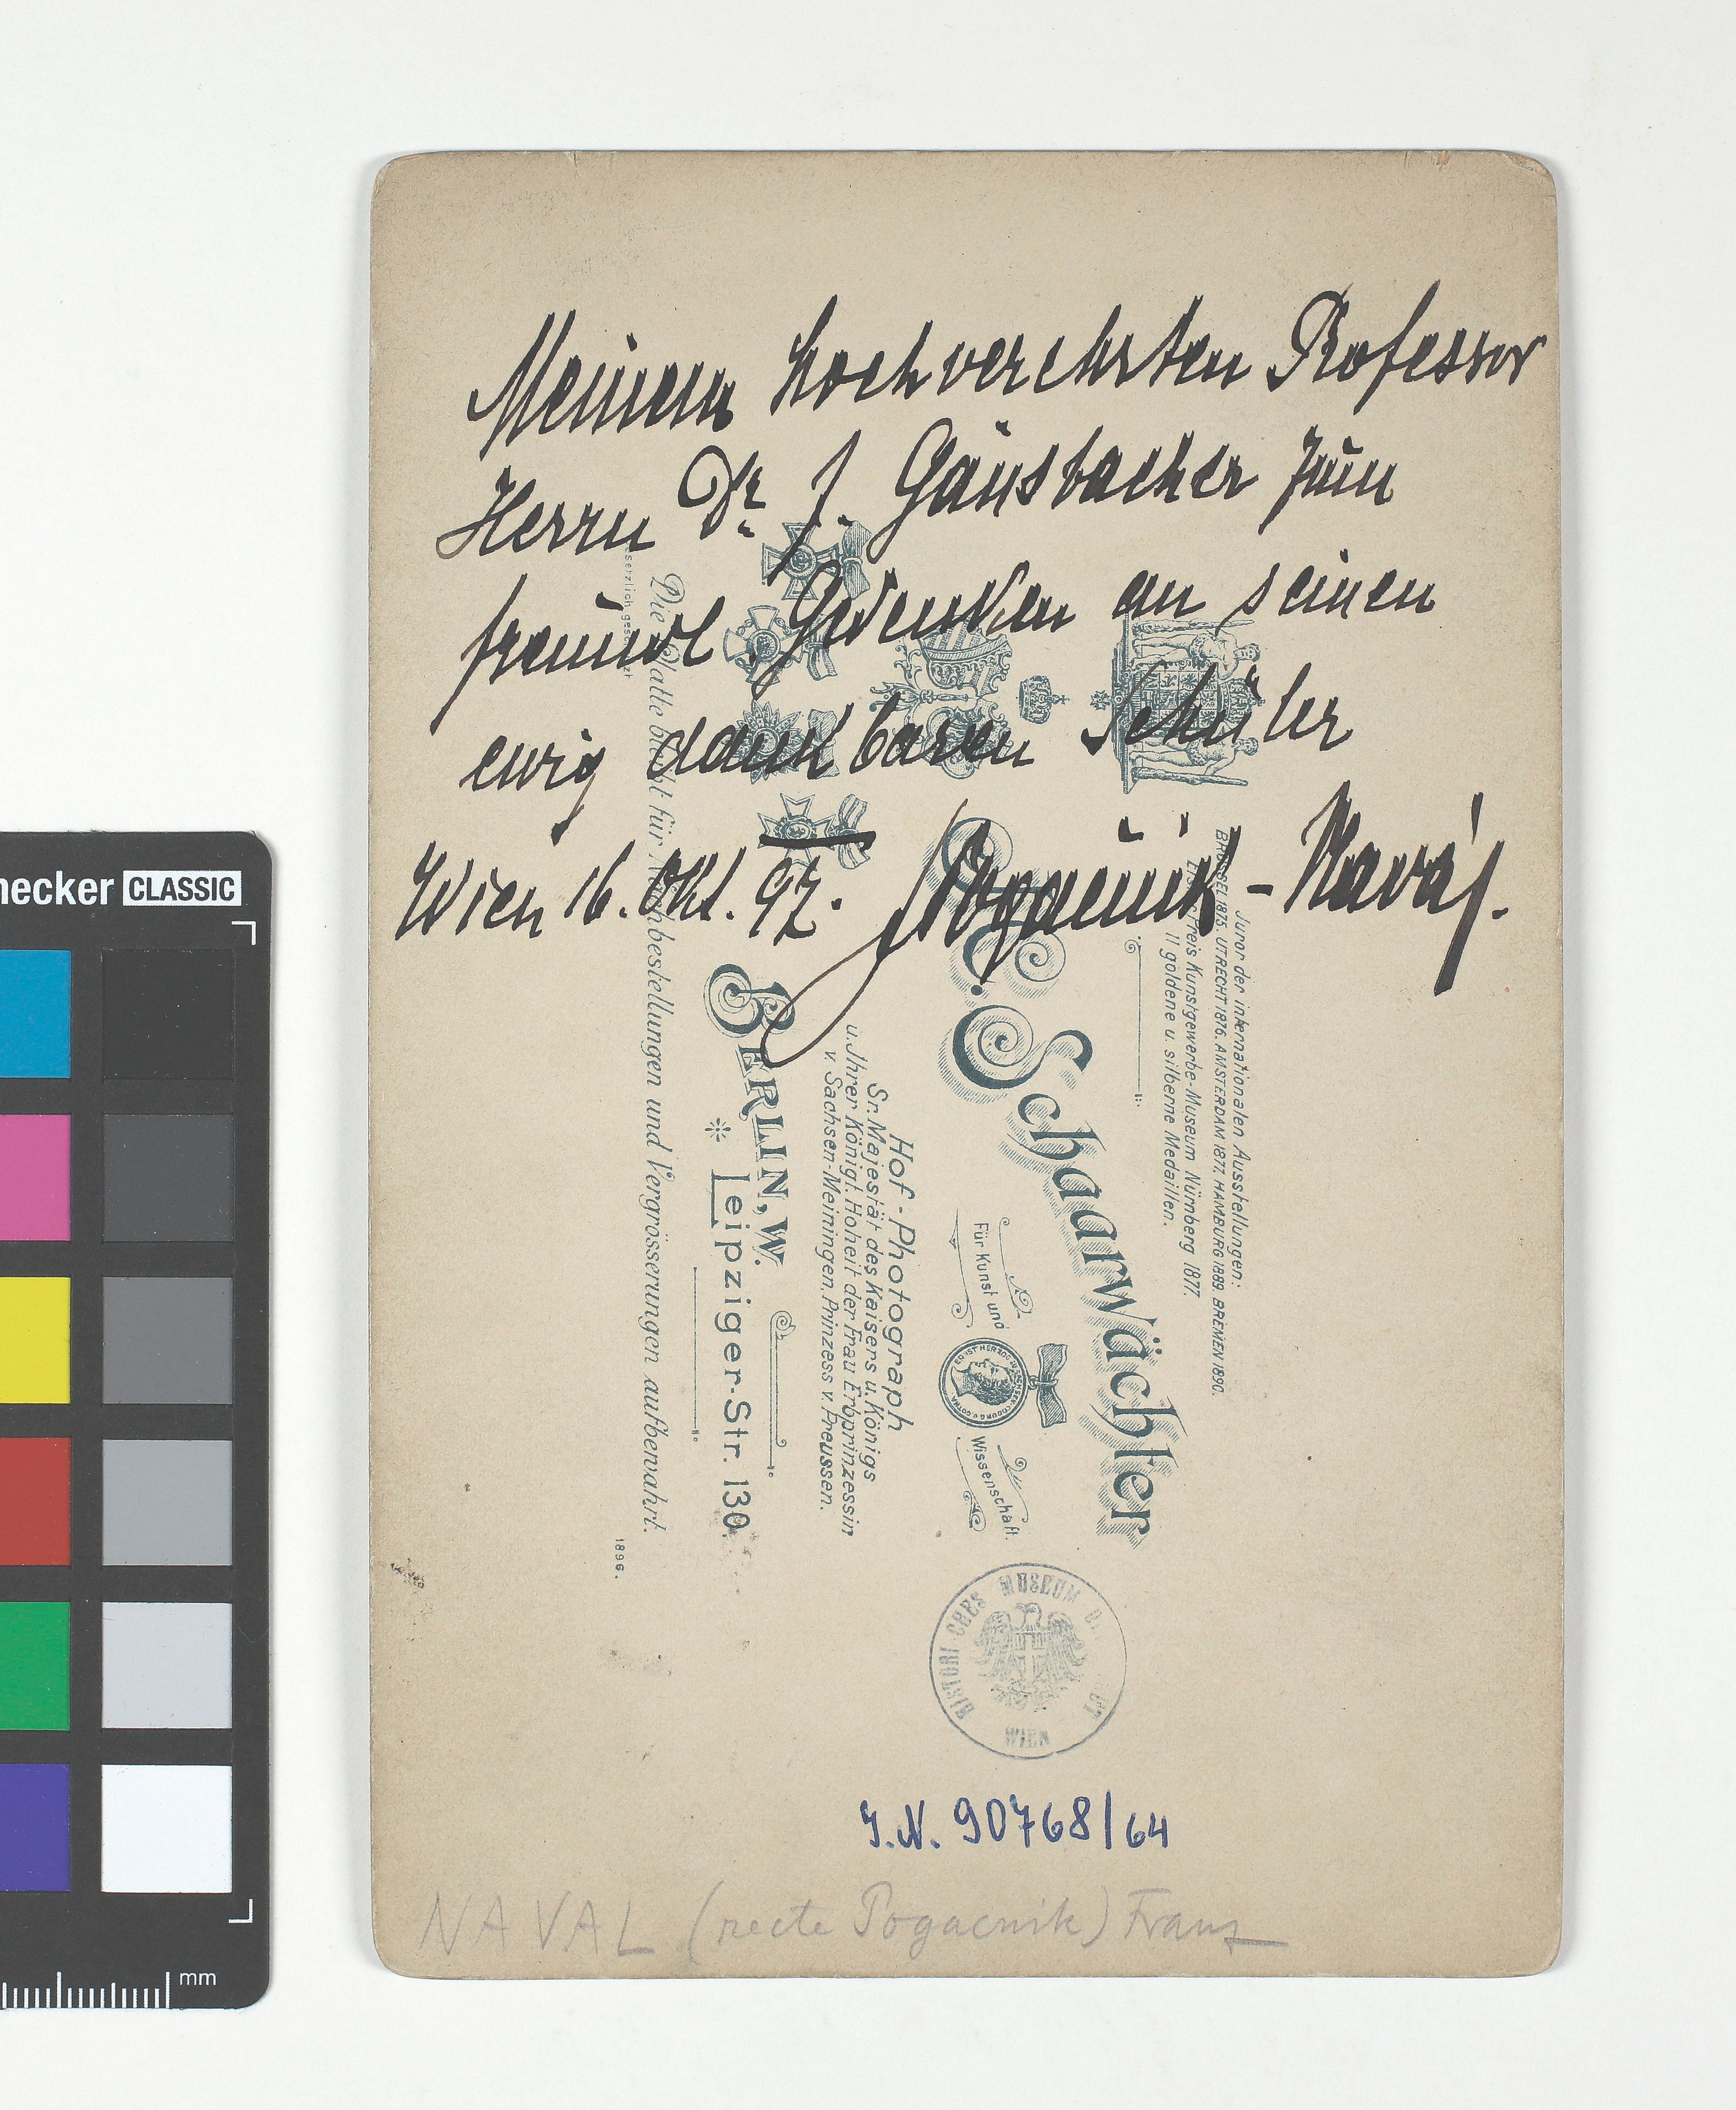 Meinem hochverehrten Professor
Herrn Dr. J. Gänsbacher zum
freundl. Gedenken an seinen
ewig dankbaren Schüler
Wien 16. Okt. 97. Pogačnik - Naval.
Juror der internationalen Ausstellungen:
BRÜSSEL 1875. UTRECHT 1876. AMSTERDAM 1877. HAMBURG 1889. BREMEN 1890.
Preis Kunstgewerbe-Museum Nürnberg 1877.
11 goldene u. silberne Medaillen.
C. Schaarwächter
Für Kunst und Wissenschaft.
ERNST HERZOG
Hof-Photograph
Sr. Majestät des Kaisers u. Königs
u. Ihrer Königl. Hoheit der Frau Erbprinzessin
v. Sachsen-Meiningen, Prinzess v. Preussen.
BERLIN, W.
Leipziger-Str. 130.
Die Platte bleibt für Nachbestellungen und Vergrösserungen aufbewahrt.
1896.
HISTORISCHES MUSEUM
WIEN
J.N. 90768/64
NAVAL (recte Pogacnik) Franz
checker CLASSIC
mm